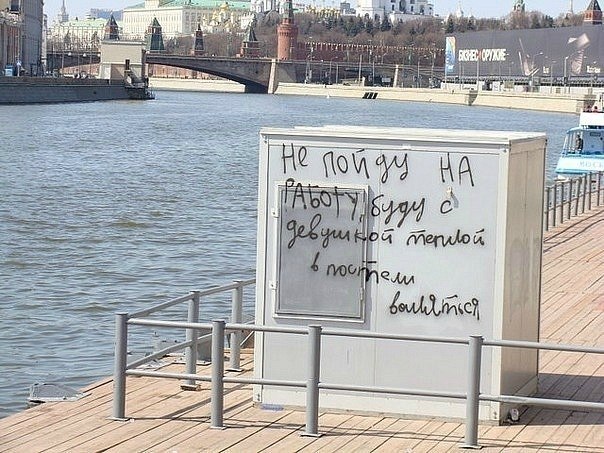 Не пойду на
работу, буду с
девушкой теплой
в постели
валяться
БИЗНЕС ОРУЖИЕ